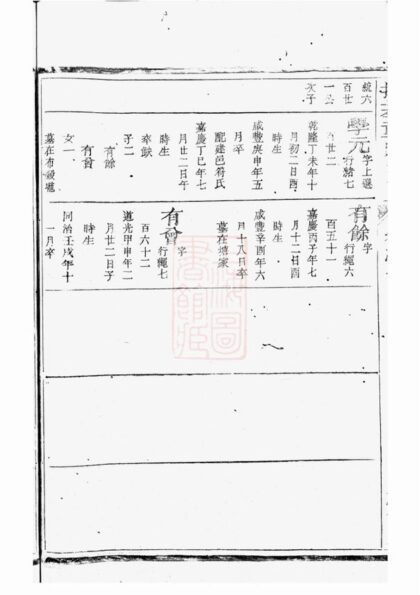 統六
百廿
一公
次子
學元字上選
行緒七
百廿二
乾隆丁未年十
月初二日酉
時生
咸豐庚申年五
月卒
配建邑符氏
嘉慶丁巳年七
月廿二日午
時生
卒缺
子二
有餘
有會
女一
墓在
有餘字
行繩六
百五十一
嘉慶丙子年七
月十二日酉
時生
咸豐辛酉年六
月十八日卒
墓在
有會字
行繩七
百六十二
道光甲申年二
月廿二日子
時生
同治壬戌年十
一月卒